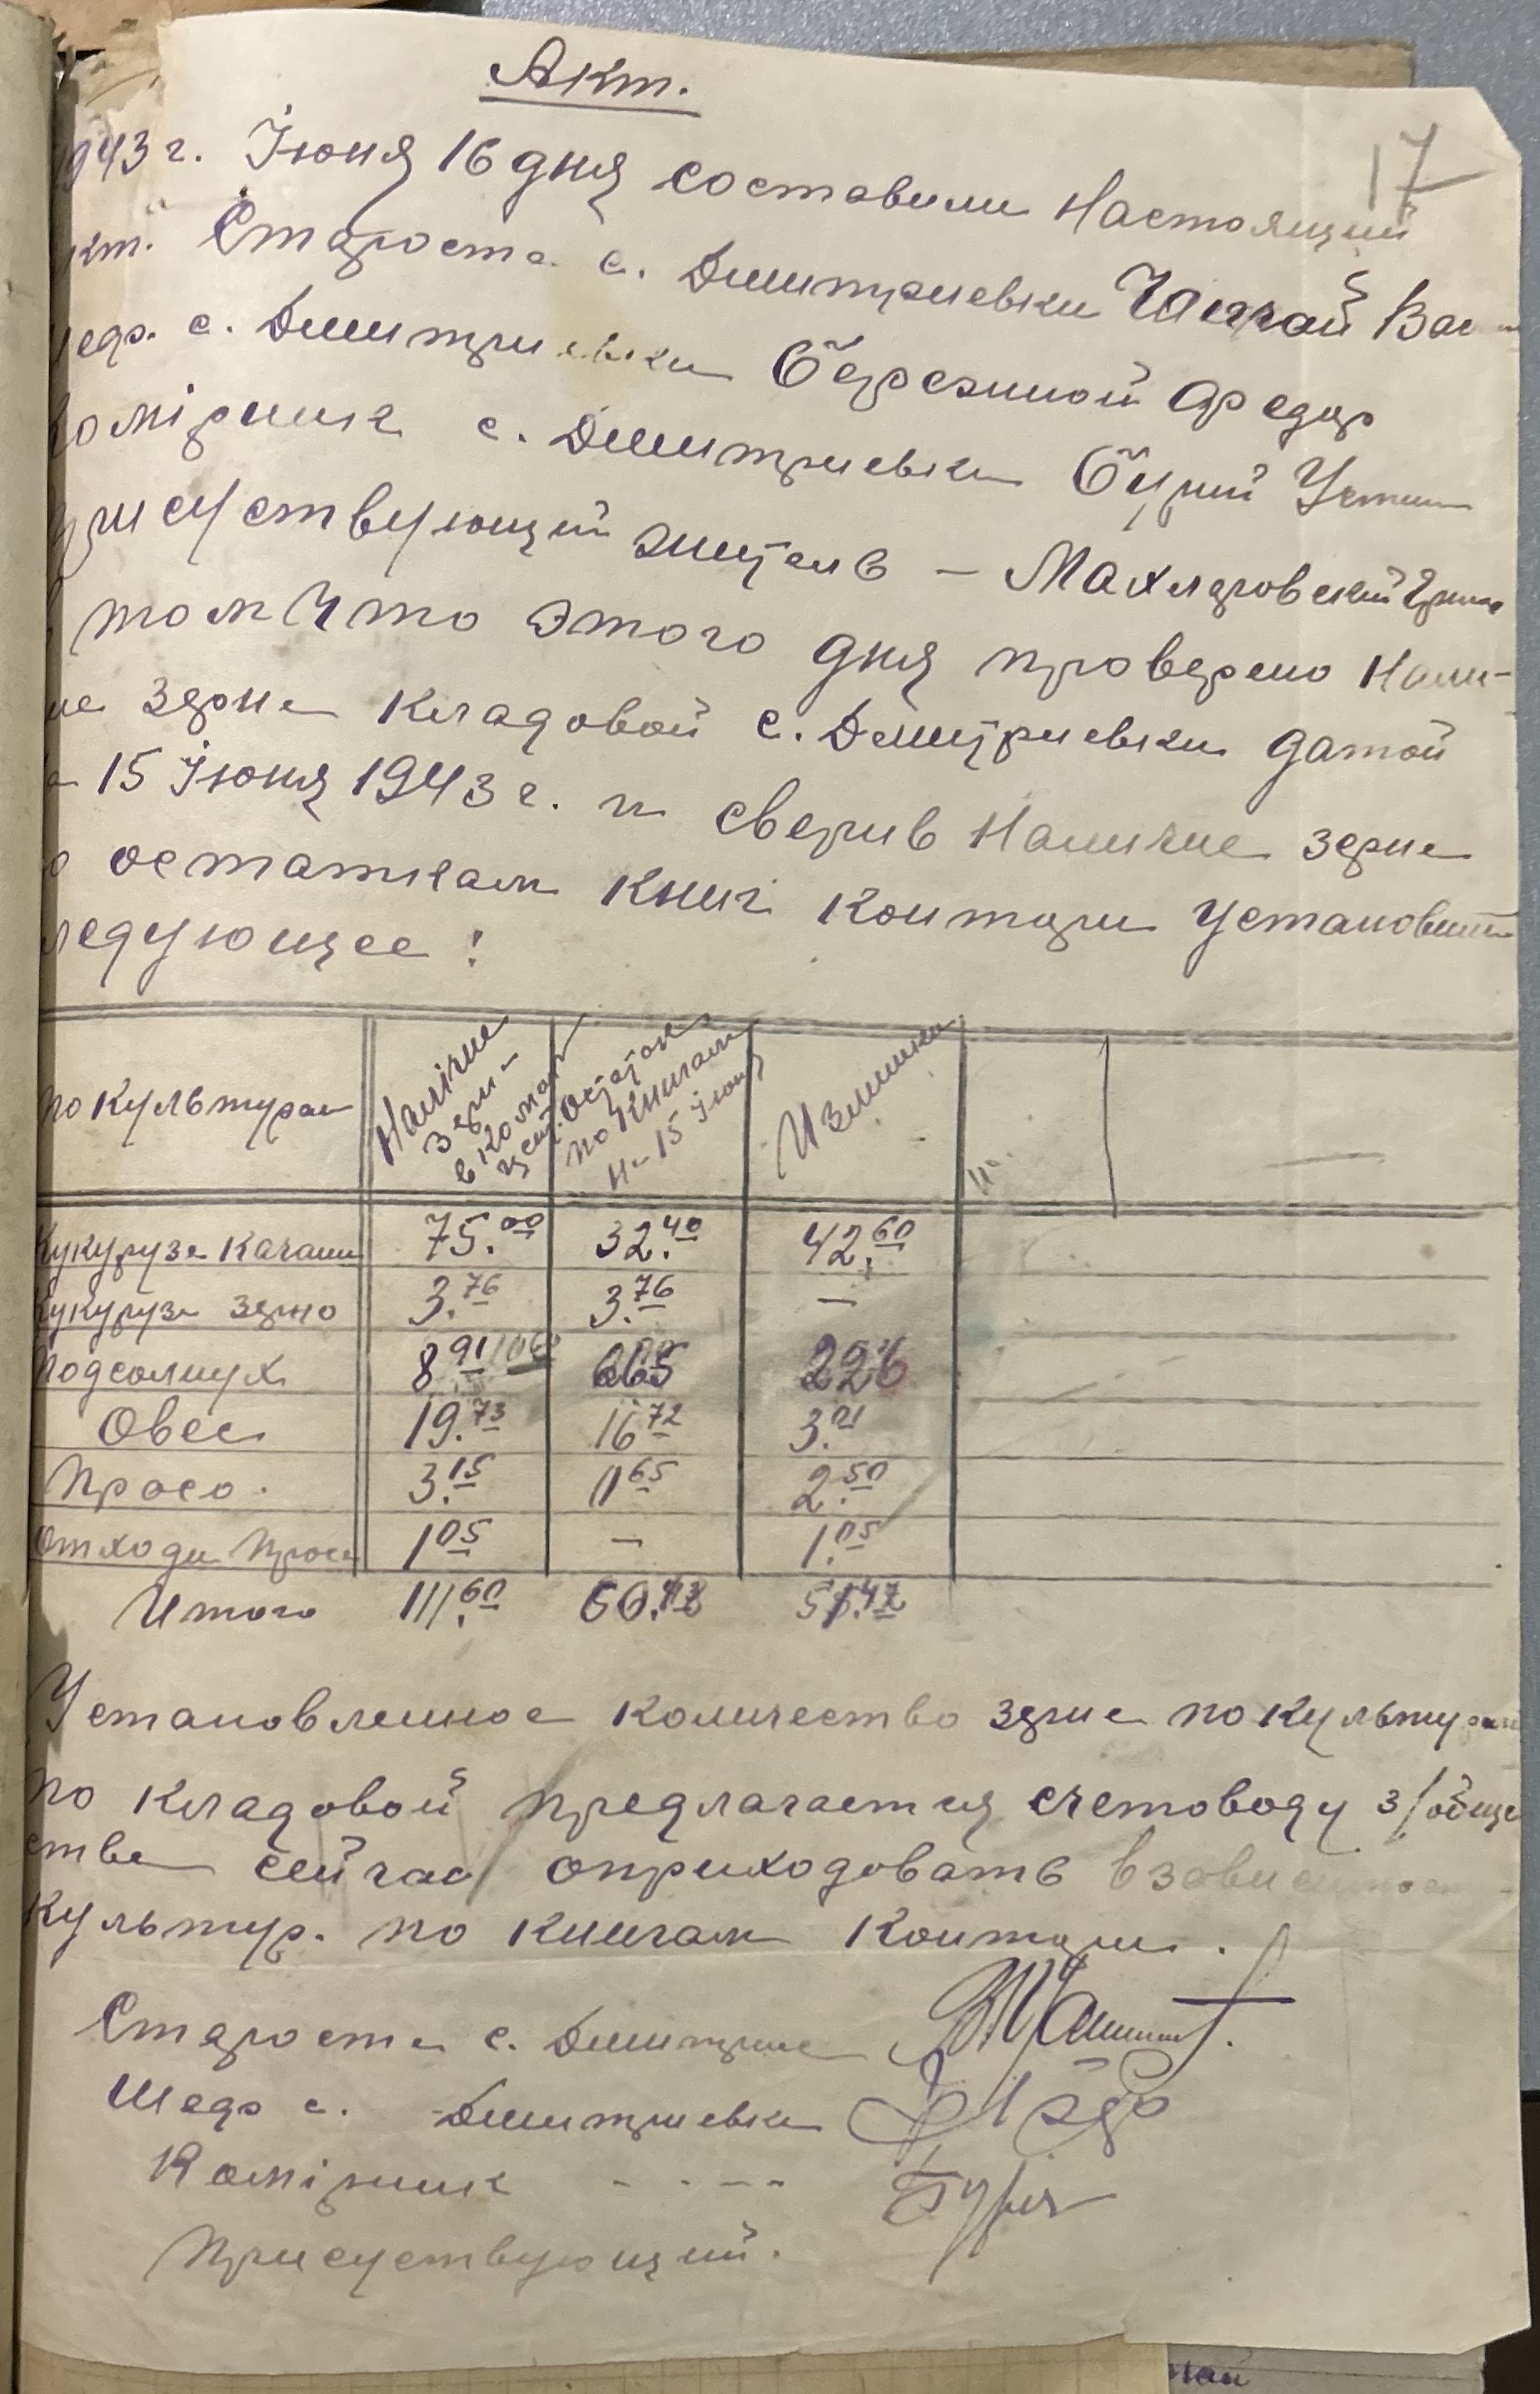 Акт.
17
1943 г. Іюня 16 дня составили настоящий
кт. Староста с. Дмитриевки Чаглай Вас
едр. с. Дмитриевки Березной Федор
омірник с. Дмитриевки Бурий Устин
рисуствующий житель – Махляровский
том что этого дня проверено нали-
ие зерна кладовой с. Дмитриевки датой
а 15 Іюня 1943 г. и сверив наличие зерна
о остаткам книг конторы установили
ледующее:
по культурам
Налічие зерн- в комор цент.
Остаток по книгам на 15 Іюня
Излишки
Кукуруза качани 75.00 32.40 42.60
Кукуруза зерно 3.76 3.76 –
Подсолнух 8 91 665 226
Овес 19.73 16 72 3.01
Просо. 3.15 0 65 2.50
Отходи проса 1 05 – 1.05
Итого 111.60
Установленное количество зерна по культурам
по кладовой предлагается счетоводу з/обще
ства сейчас оприходовать в зависимост
культур. по книгам конторы.
Староста с. Дмитрие
Шедр с. Дмитриевки
Комірник - - - - Бурий
Присуствующий.